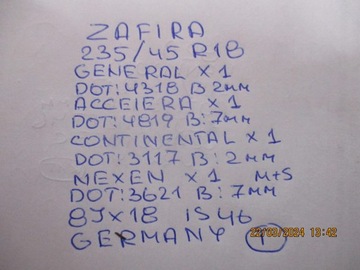 ZAFIRA
235/45 R18
GENERAL X 1
DOT:4318 B 2мм
ACCEIERA X 1
DOT:4819 B:7мм
CONTINENTAL X 1
DOT:3117 B:2мм
NEXEN X 1 M+S
DOT:3621 B:7мм
8JX18 IS46
GERMANY 1
22/03/2024 13:42